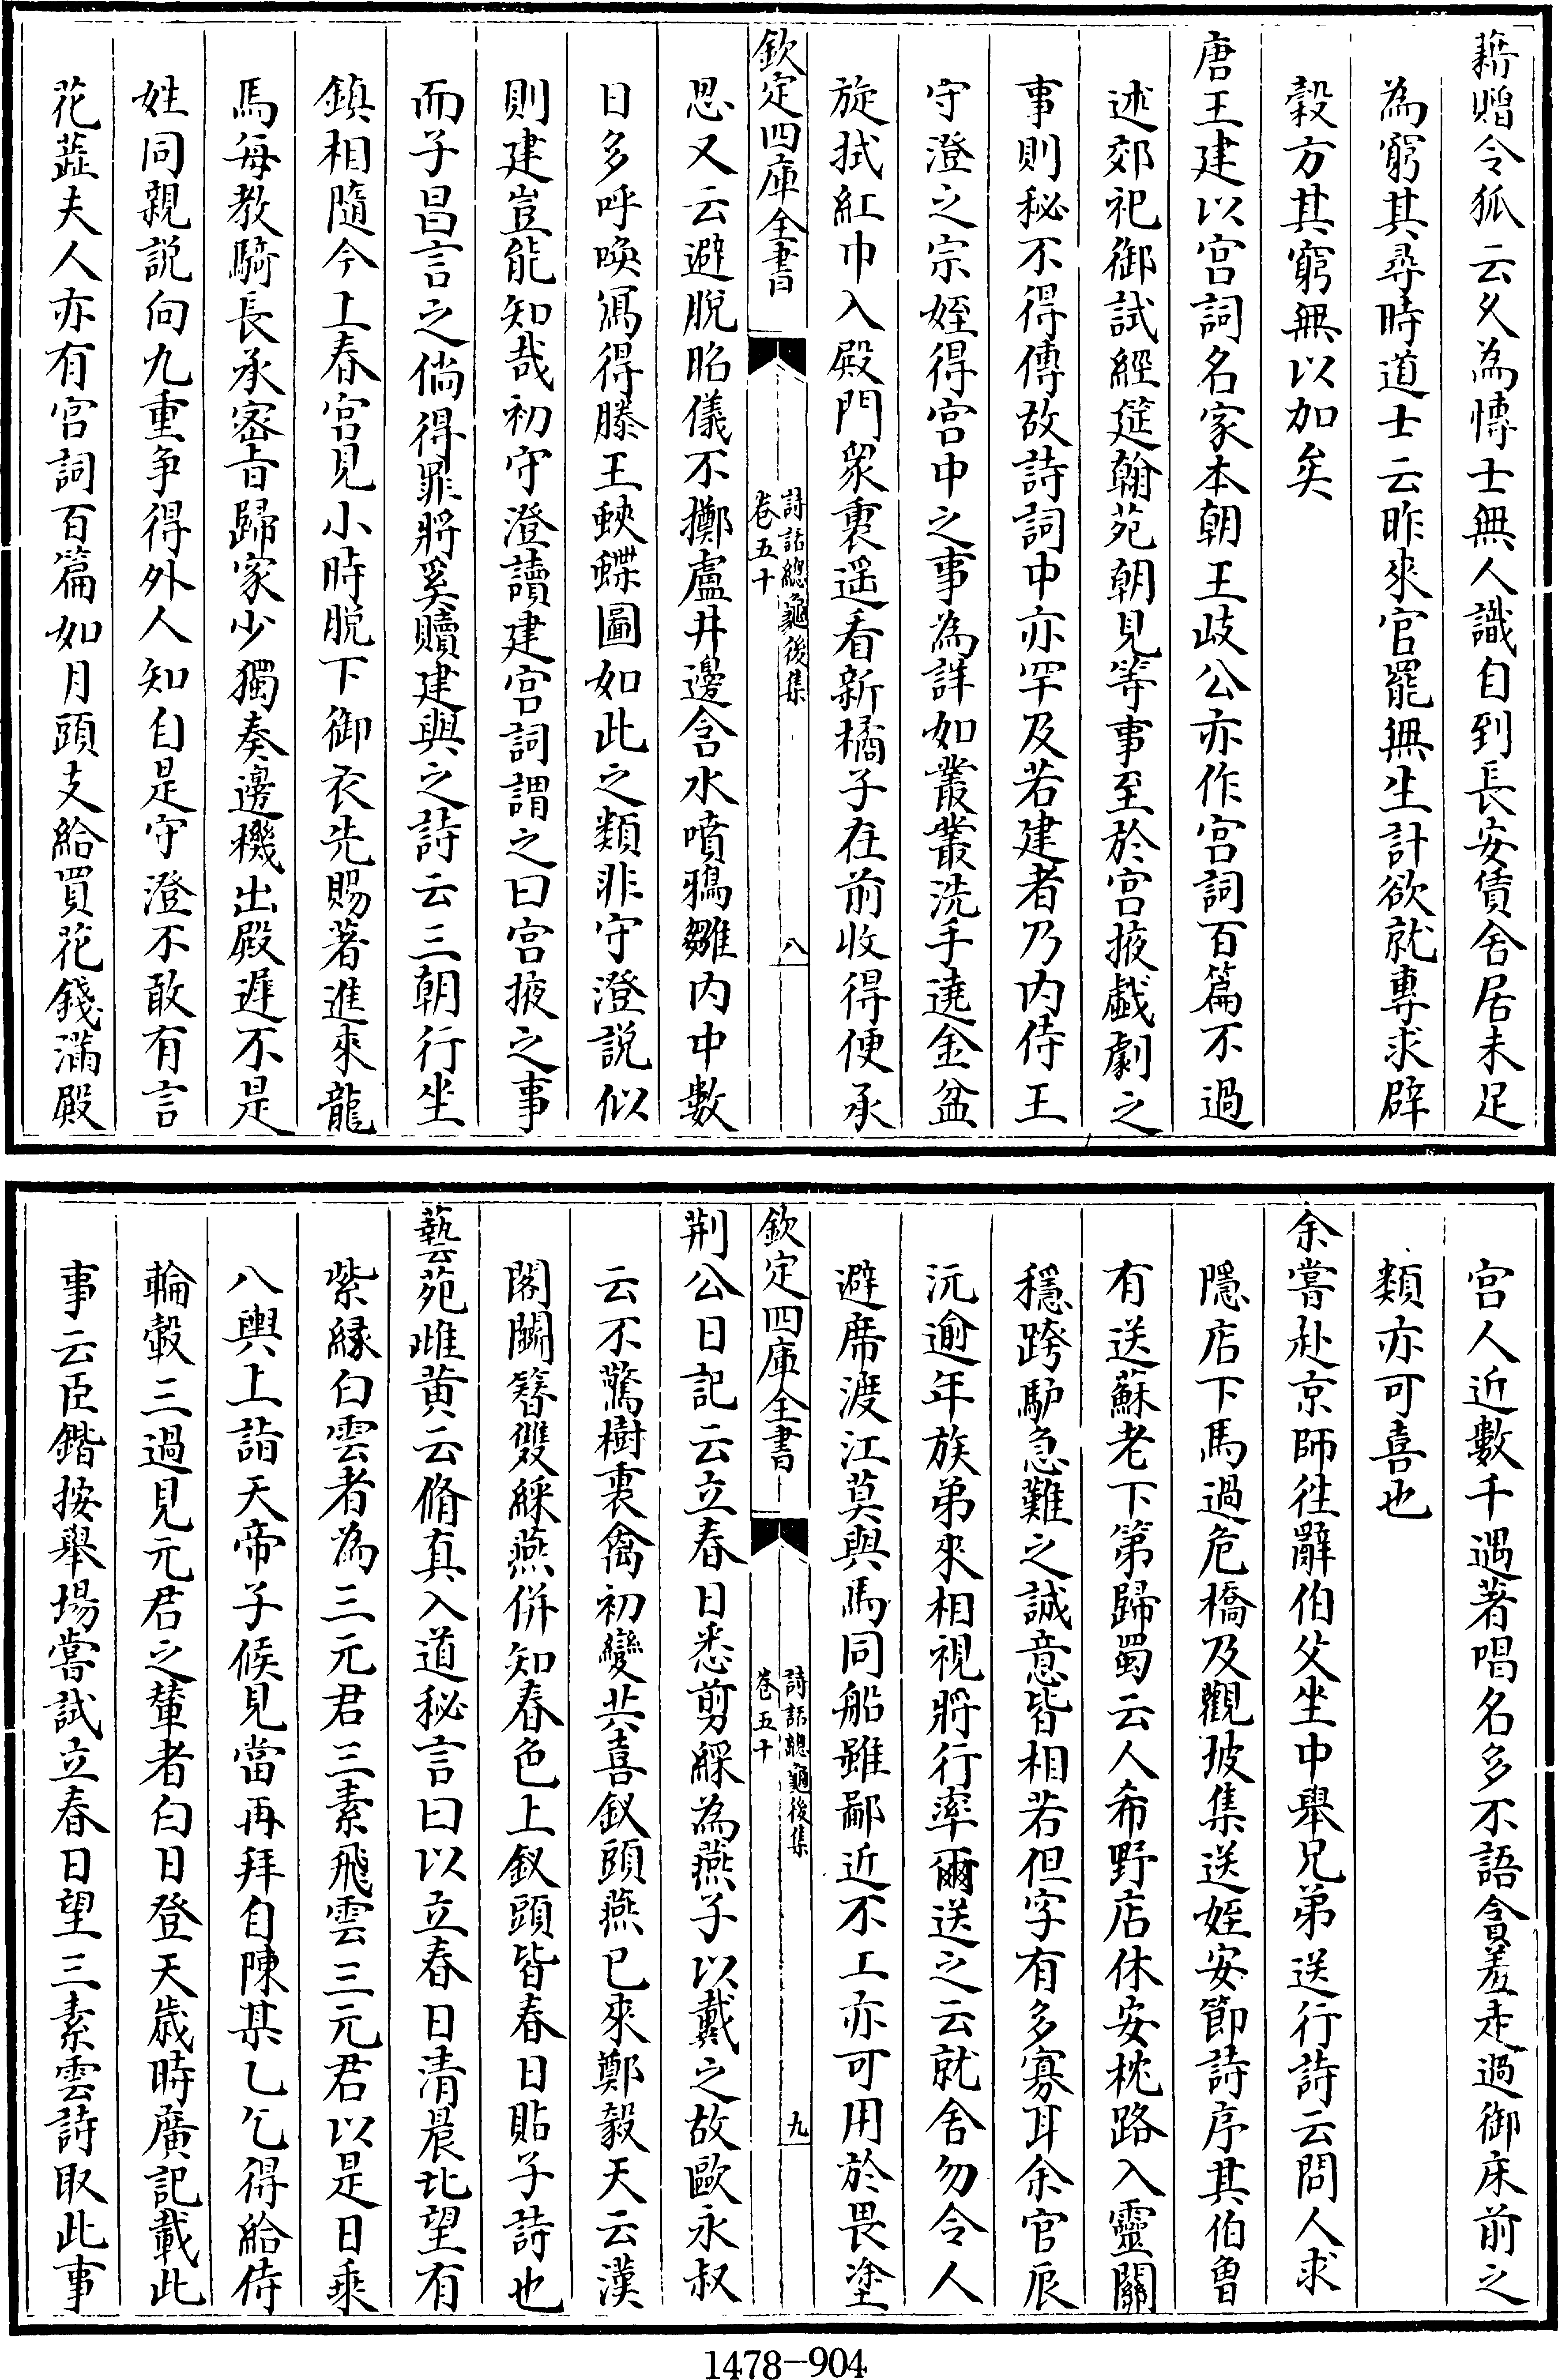 藉贈令狐云久為博士無人識自到長安賃舍居未足
為窮其尋時道士云昨來官罷無生計欲就專求辟
穀方其窮無以加矣
唐王建以宫詞名家本朝王歧公亦作宫詞百篇不過
述郊祀御試經筵翰苑朝見等事至於宫掖戯劇之
事則秘不得傳故詩詞中亦罕及若建者乃内侍王
守澄之宗姪得宫中之事為詳如叢叢洗手遶金盆
旋拭紅巾入殿門衆裏遥看新橘子在前收得便承
欽定四庫全書
詩話總龜後集
卷五十
八
恩又云避脱昭儀不擲盧井邊含水噴鴉雛内中數
日多呼喚寫得滕王蛺蝶圖如此之類非守澄説似
則建豈能知哉初守澄讀建宫詞謂之曰宫掖之事
而子昌言之倘得罪將奚贖建與之詩云三朝行坐
鎮相隨今上春宫見小時脱下御衣先賜著進來龍
馬每教騎長承密旨歸家少獨奏邊機出殿遲不是
姓同親説向九重争得外人知自是守澄不敢有言
花蕋夫人亦有宫詞百篇如月頭支給買花錢滿殿
宫人近數千遇著唱名多不語含羞走過御床前之
類亦可喜也
余嘗赴京師徃辭伯父坐中舉兄弟送行詩云問人求
隱店下馬過危橋及觀坡集送姪安節詩序其伯魯
有送蘇老下第歸蜀云人希野店休安枕路入靈關
穩跨驢急難之誠意皆相若但字有多寡耳余官辰
沅逾年族弟來相視將行率爾送之云就舍勿令人
避席渡江莫與馬同船雖鄙近不工亦可用於畏塗
欽定四庫全書
詩話總龜後集
卷五十
九
荆公日記云立春日悉剪綵為燕子以戴之故歐永叔
云不驚樹裏禽初變共喜釵頭燕已來鄭毅天云漢
閣鬭簪雙綵燕併知春色上釵頭皆春日貼子詩也
藝苑雌黄云脩真入道秘言曰以立春日清晨北望有
紫緑白雲者為三元君三素飛雲三元君以是日乗
八輿上詣天帝子候見當再拜自陳某乙乞得給侍
輪轂三過見元君之輦者白日登天歳時廣記載此
事云臣鍇按舉場嘗試立春日望三素雲詩取此事
1478-904